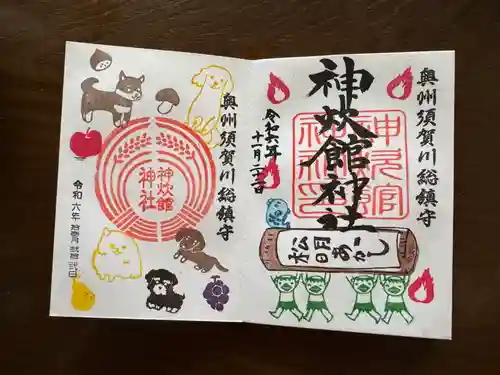 奥州須賀川総鎮守
神炊館神社
令和六年
十一月二十二日
神炊館
神社印
松明
あかし
奥州須賀川総鎮守
神炊館
神社
令和六年 拾壱月 弐拾弐日